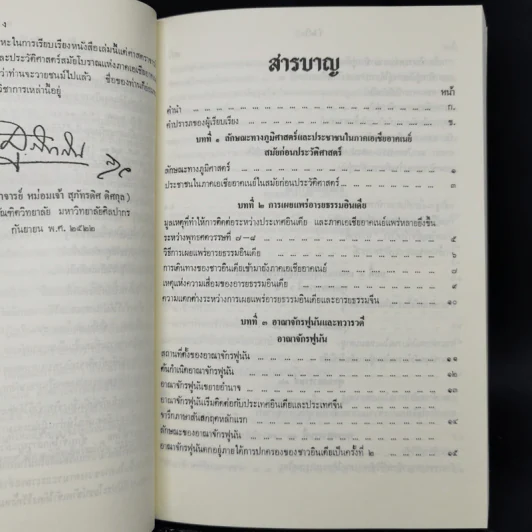 ในการเรียบเรียงหนังสือเล่มนี้แด่ศาสตราจาร
และประวัติศาสตร์สมัยโบราณแห่งภาคเอเชียอาคเน
ว่าท่านจะวายชนม์ไปแล้ว ชื่อของท่านก็
วิชาการเหล่านี้อยู่
าจารย์ หม่อมเจ้า สุภัทรดิศ ดิศกุล)
บัณฑิตวิทยาลัย มหาวิทยาลัยศิลปากร
กันยายน พ.ศ. ๒๕๒๒
สารบาญ
หน้า
คำนำ ก.
คำปรารภของผู้เรียบเรียง ข.
บทที่ ๑ ลักษณะทางภูมิศาสตร์และประชาชนในภาคเอเชียอาคเนย์
สมัยก่อนประวัติศาสตร์
ลักษณะทางภูมิศาสตร์ ๑
ประชาชนในภาคเอเชียอาคเนย์ในสมัยก่อนประวัติศาสตร์ ๓
บทที่ ๒ การเผยแพร่อารยธรรมอินเดีย
มูลเหตุที่ทำให้การติดต่อระหว่างประเทศอินเดีย และภาคเอเชียอาคเนย์แพร่หลายยิ่งขึ้น
ระหว่างพุทธศตวรรษที่ ๗–๘ ๕
วิธีการเผยแพร่อารยธรรมอินเดีย ๗
การเดินทางของชาวอินเดียเข้ามายังภาคเอเชียอาคเนย์ ๘
เหตุแห่งความเสื่อมของอารยธรรมอินเดีย ๙
ความแตกต่างระหว่างการเผยแพร่อารยธรรมอินเดียและอารยธรรมจีน ๑๐
บทที่ ๓ อาณาจักรฟูนันและทวารวดี
อาณาจักรฟูนัน
สถานที่ตั้งของอาณาจักรฟูนัน ๑๑
ต้นกำเนิดอาณาจักรฟูนัน ๑๒
อาณาจักรฟูนันขยายอำนาจ ๑๓
อาณาจักรฟูนันเริ่มติดต่อกับประเทศอินเดียและประเทศจีน
จารึกภาษาสันสกฤตหลักแรก ๑๔
ลักษณะของอาณาจักรฟูนัน
อาณาจักรฟูนันตกอยู่ภายใต้การปกครองของชาวอินเดียเป็นครั้งที่ ๒ ๑๕